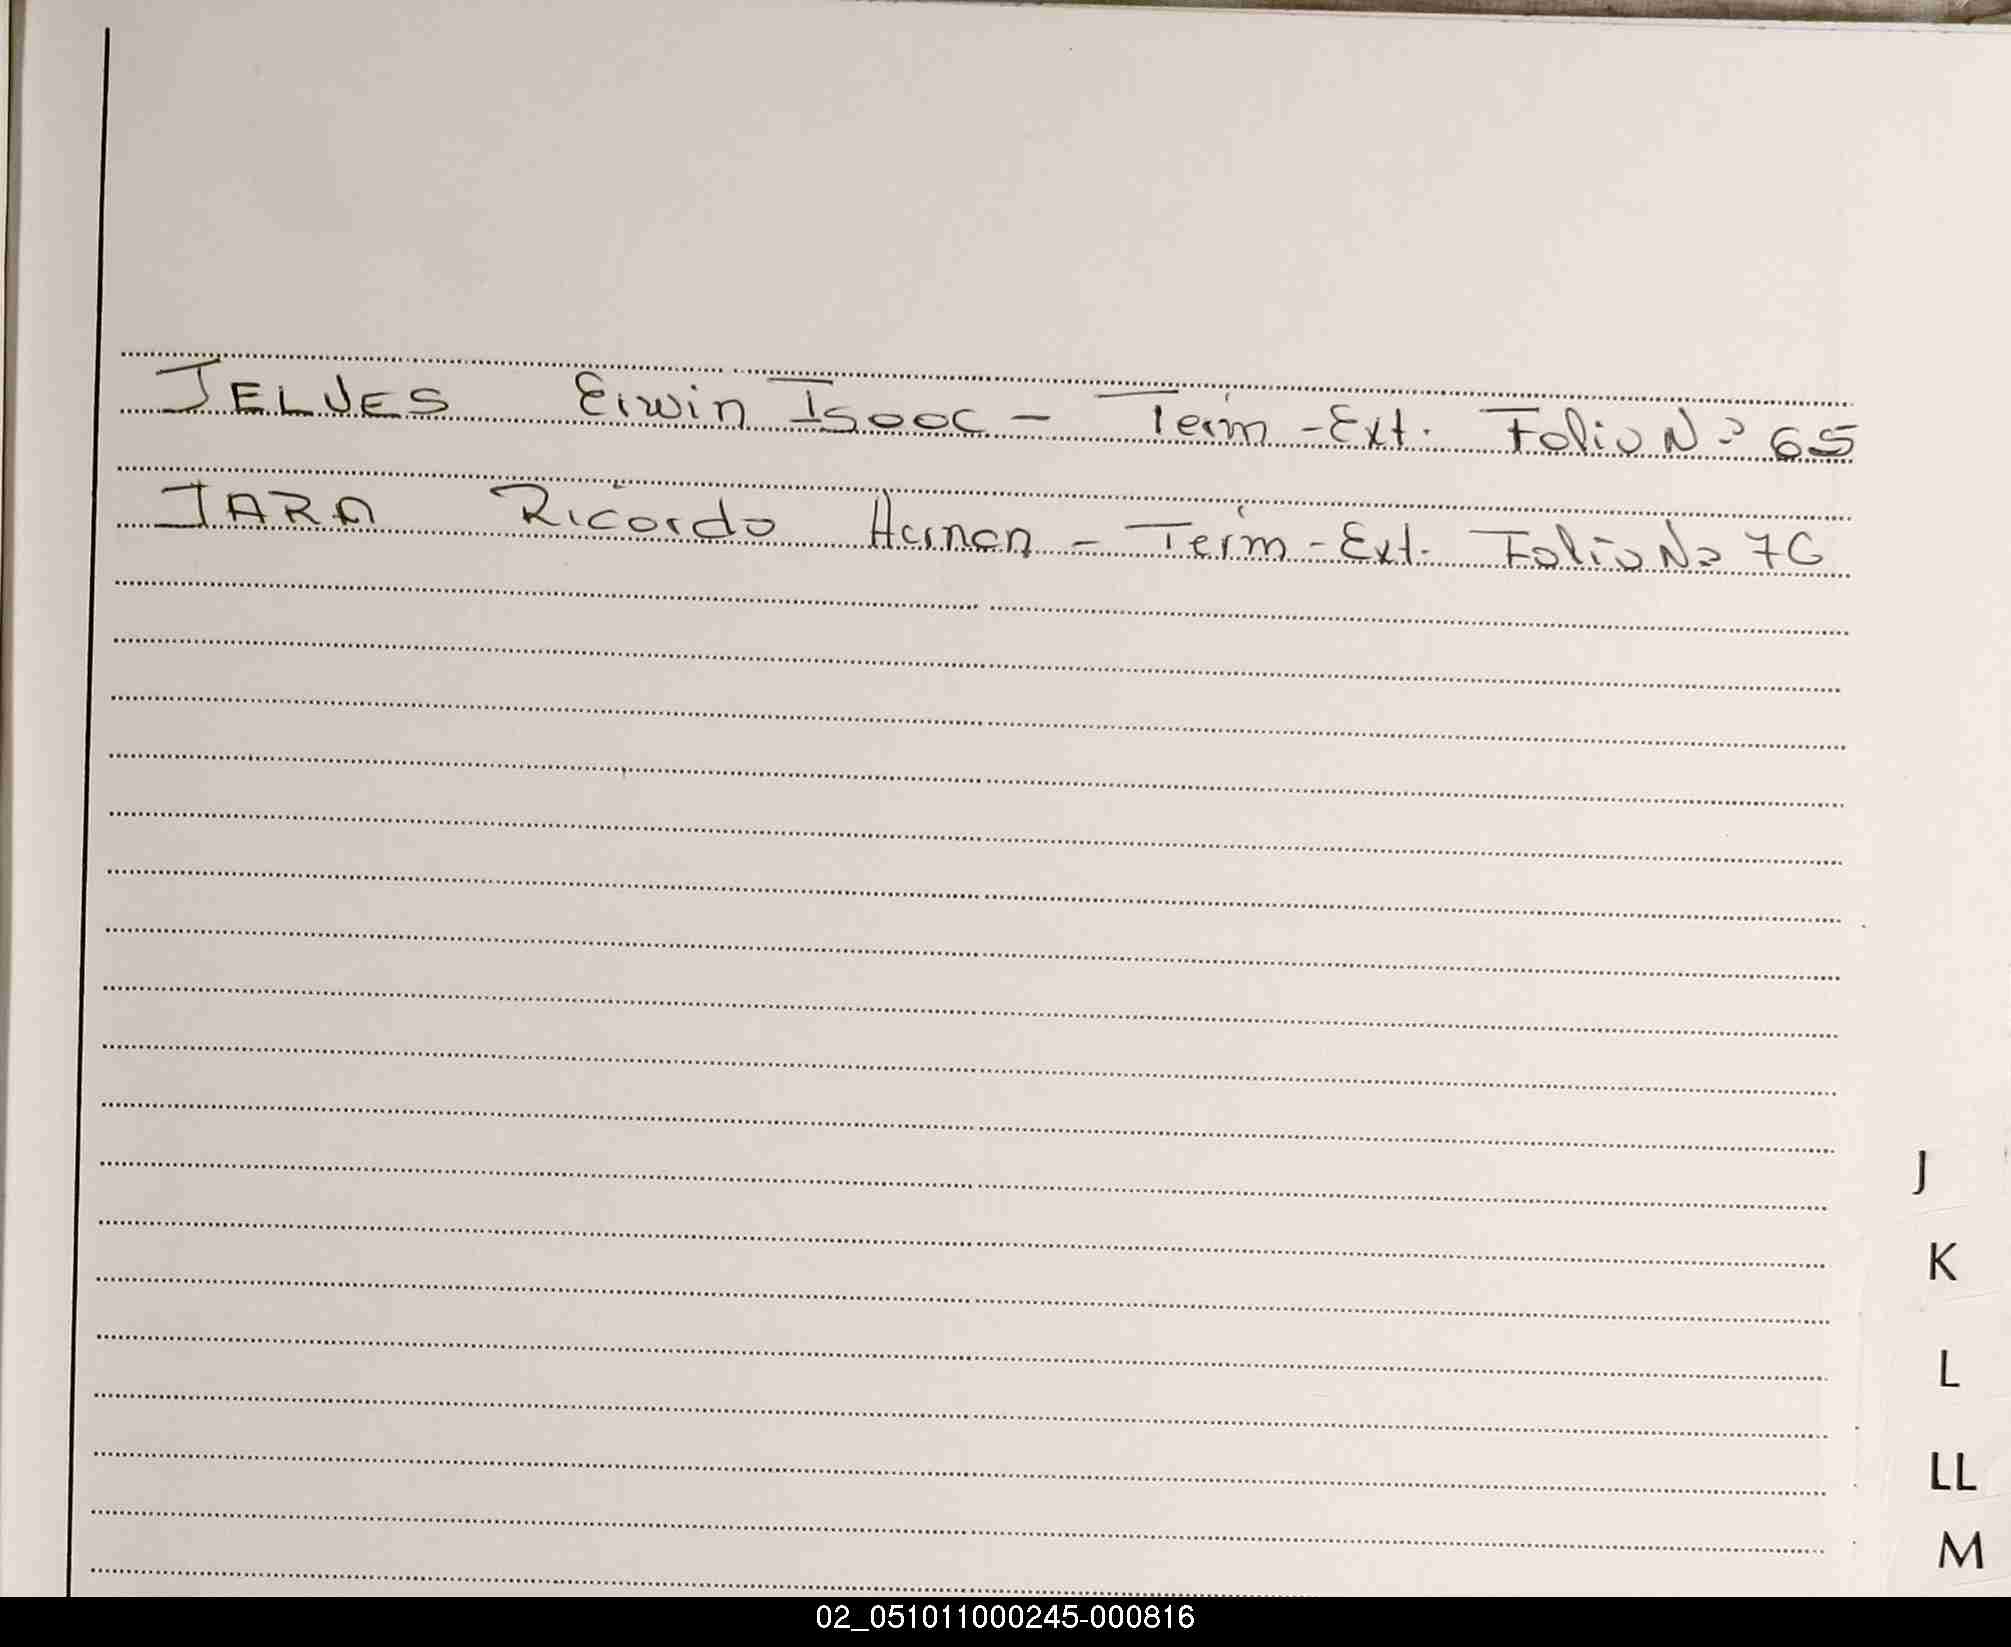 JELVES Erwin Isaac - Térm - Ext. Folio Nº 65
JARA Ricardo Hernan - Térm - Ext. Folio Nº 76
J
K
L
LL
M
02_051011000245-000816